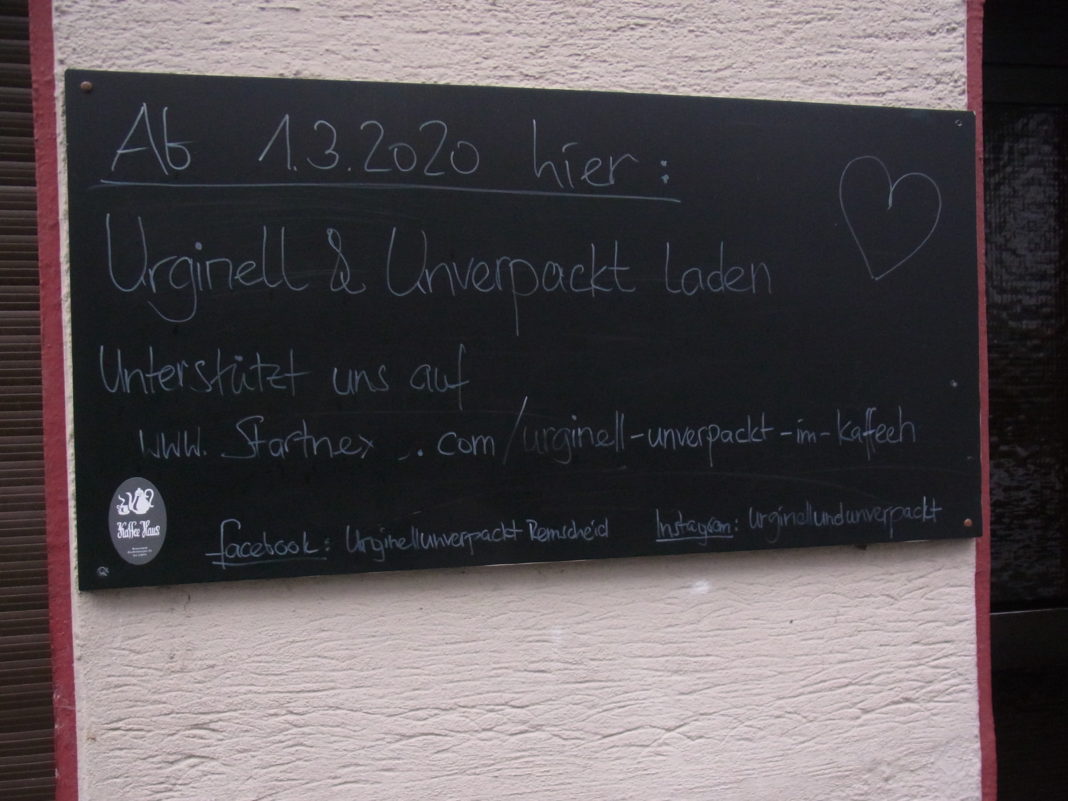 Ab 1.3.2020 hier:
Urginell & Unverpackt Laden
Unterstützt uns auf
www. Startnex .com/urginell-unverpackt-im-kaffeeh
Kaffee Haus
facebook: Urginellunverpackt Remscheid
Instagram: urginellundunverpackt